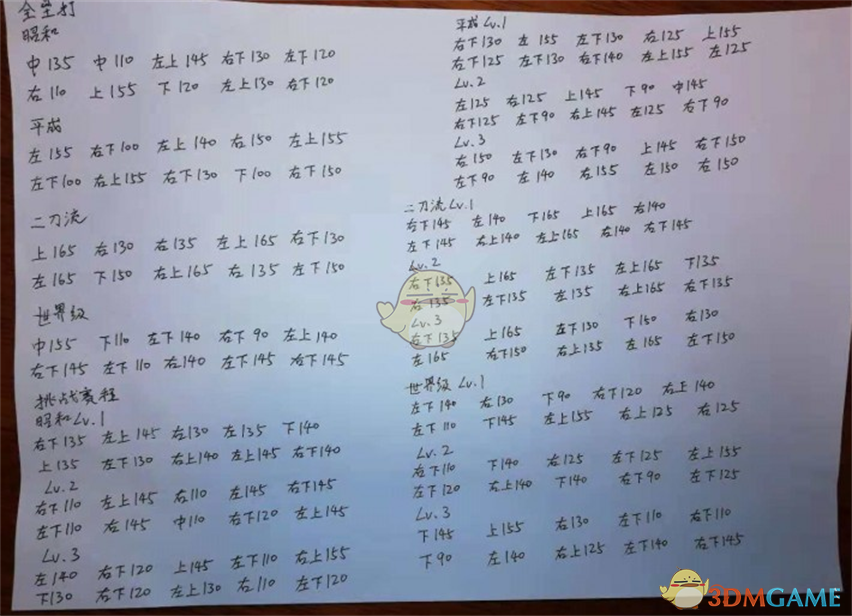 全垒打
昭和
中135 中110 左上145 右下130 左下120
右110 上155 下120 左上130 右下120
平成
左155 右下100 左上140 右150 左上155
左下100 右上155 右下130 下100 右下150
二刀流
上165 右130 右135 左上165 右下130
左165 下150 右上165 右135 左下150
世界级
中155 下110 左下140 右下90 左上140
右下145 左下110 右140 左下145 右下145
挑战赛程
昭和Lv.1
右下135 左上145 右130 左135 下140
上135 左下130 右上140 左上145 右下140
Lv.2
右下110 左上145 右110 左145 右下145
左下110 右145 中110 右下120 左上145
Lv.3
左140 右下120 上145 左下110 右上155
下130 右下120 左上130 右110 左下120
平成Lv.1
右下130 左155 左下130 右125 上155
右下125 左下130 右下140 左上155 左125
Lv.2
左125 右125 上145 下90 中145
右下125 左下90 右上145 左125 右下90
Lv.3
右150 左下130 右下90 上145 右下150
左下90 左140 右155 左150 右150
二刀流Lv.1
右下145 左140 下165 上165 右140
左下145 右上140 左上165 右140 右下145
Lv.2
右下135 上165 左下135 左上165 下135
右135 左下135 左135 右上165 右下135
Lv.3
右下135 上165 左下130 下150 右130
左165 右下150 右上135 左165 左下150
世界级Lv.1
左下140 右130 下90 右下120 右上140
左下110 下145 左上155 右上125 右125
Lv.2
右下110 下140 右125 左下125 左上155
左下120 右上140 下140 右下90 左下125
Lv.3
下145 上155 右130 左下110 右下110
下90 左140 右上125 左下140 右下145
3DMGAME